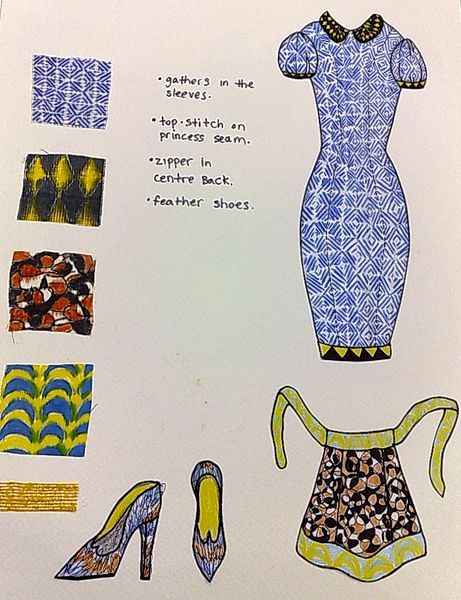 • gathers in the
sleeves.
• top-stitch on
princess seam.
• zipper in
centre Back.
• feather shoes.